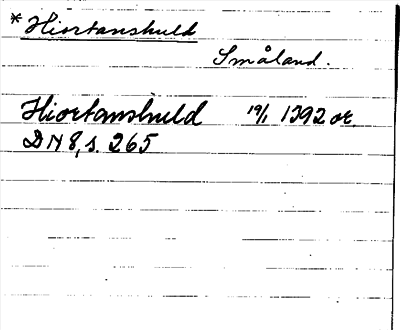 * Hiortanshuld
Småland.
Hiortanshuld 19/1 1392 or.
DN 8, s. 265